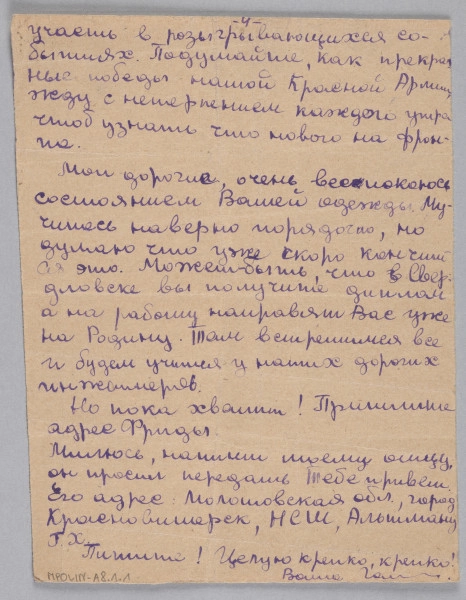 -4-
участь в розыгрывающихся со-
бытиях. Подумайте, как прекрас
ные победы нашой Красной Армии
жду с нетерпением каждого утра
чтоб узнать что нового на фрон-
та.
Мои дорогие, очень беспокоюсь
состоянием Вашей одежды. Му-
чилась наверно порядочно, но
думаю что уже скоро кончит
ся это. Может-быть, что в Свер-
дловске вы получите диплом
а на работу направят Вас уже
на Родину. Там встретимся все
и будем учится у наших дорогих
инженеров.
Но пока хватит! Пришлите
адрес Фриды.
Милюсь, напиши моему отцу,
он просил передать Тебе привет.
Его адрес: Молотовская обл., город
Красновишерск, НСШ, Альтману
Г.Х.
Пишите! Целую крепко, крепко!
Ваша
MPOLIN-A8.1.1